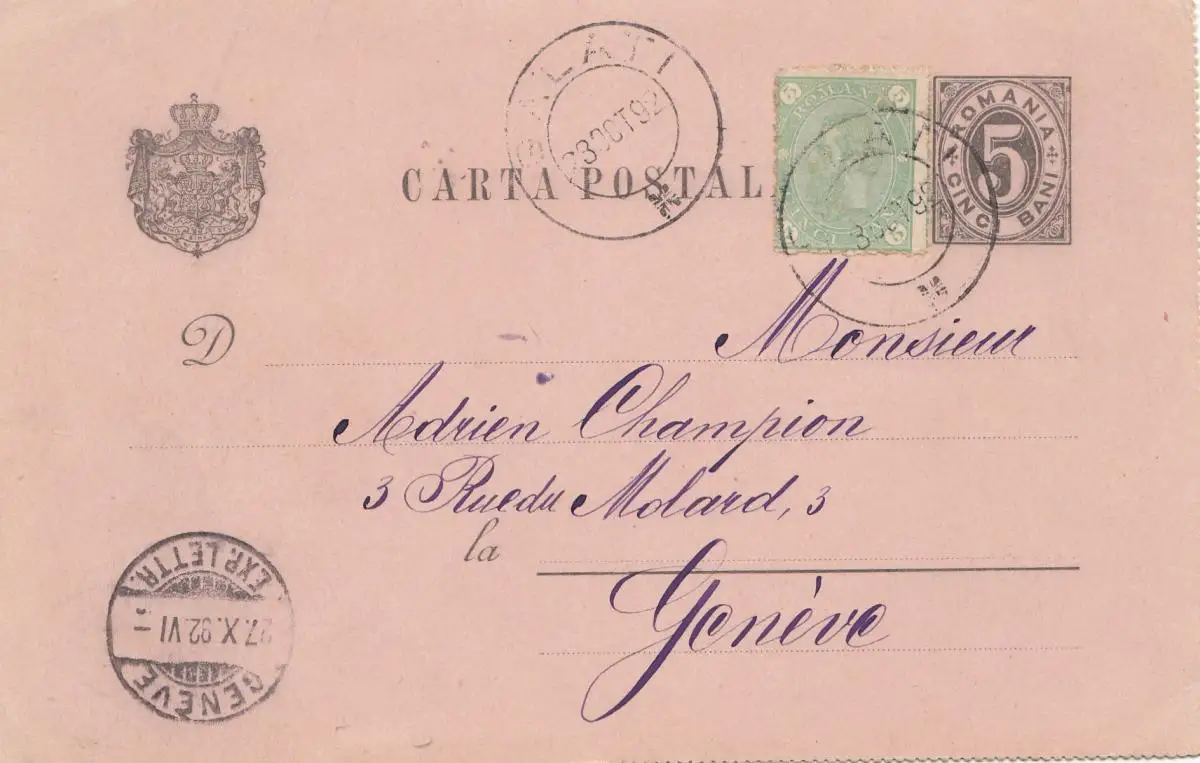 GALATI
23 OCT 92
CARTA POSTAL
5 ROMANIA 5
5
ROMANIA
5
CINCI BANI
D
Monsieur
Adrien Champion
3 Rue du Molard, 3
la
Genève
EXP. LETTR.
27.X.92.VI
GENÈVE